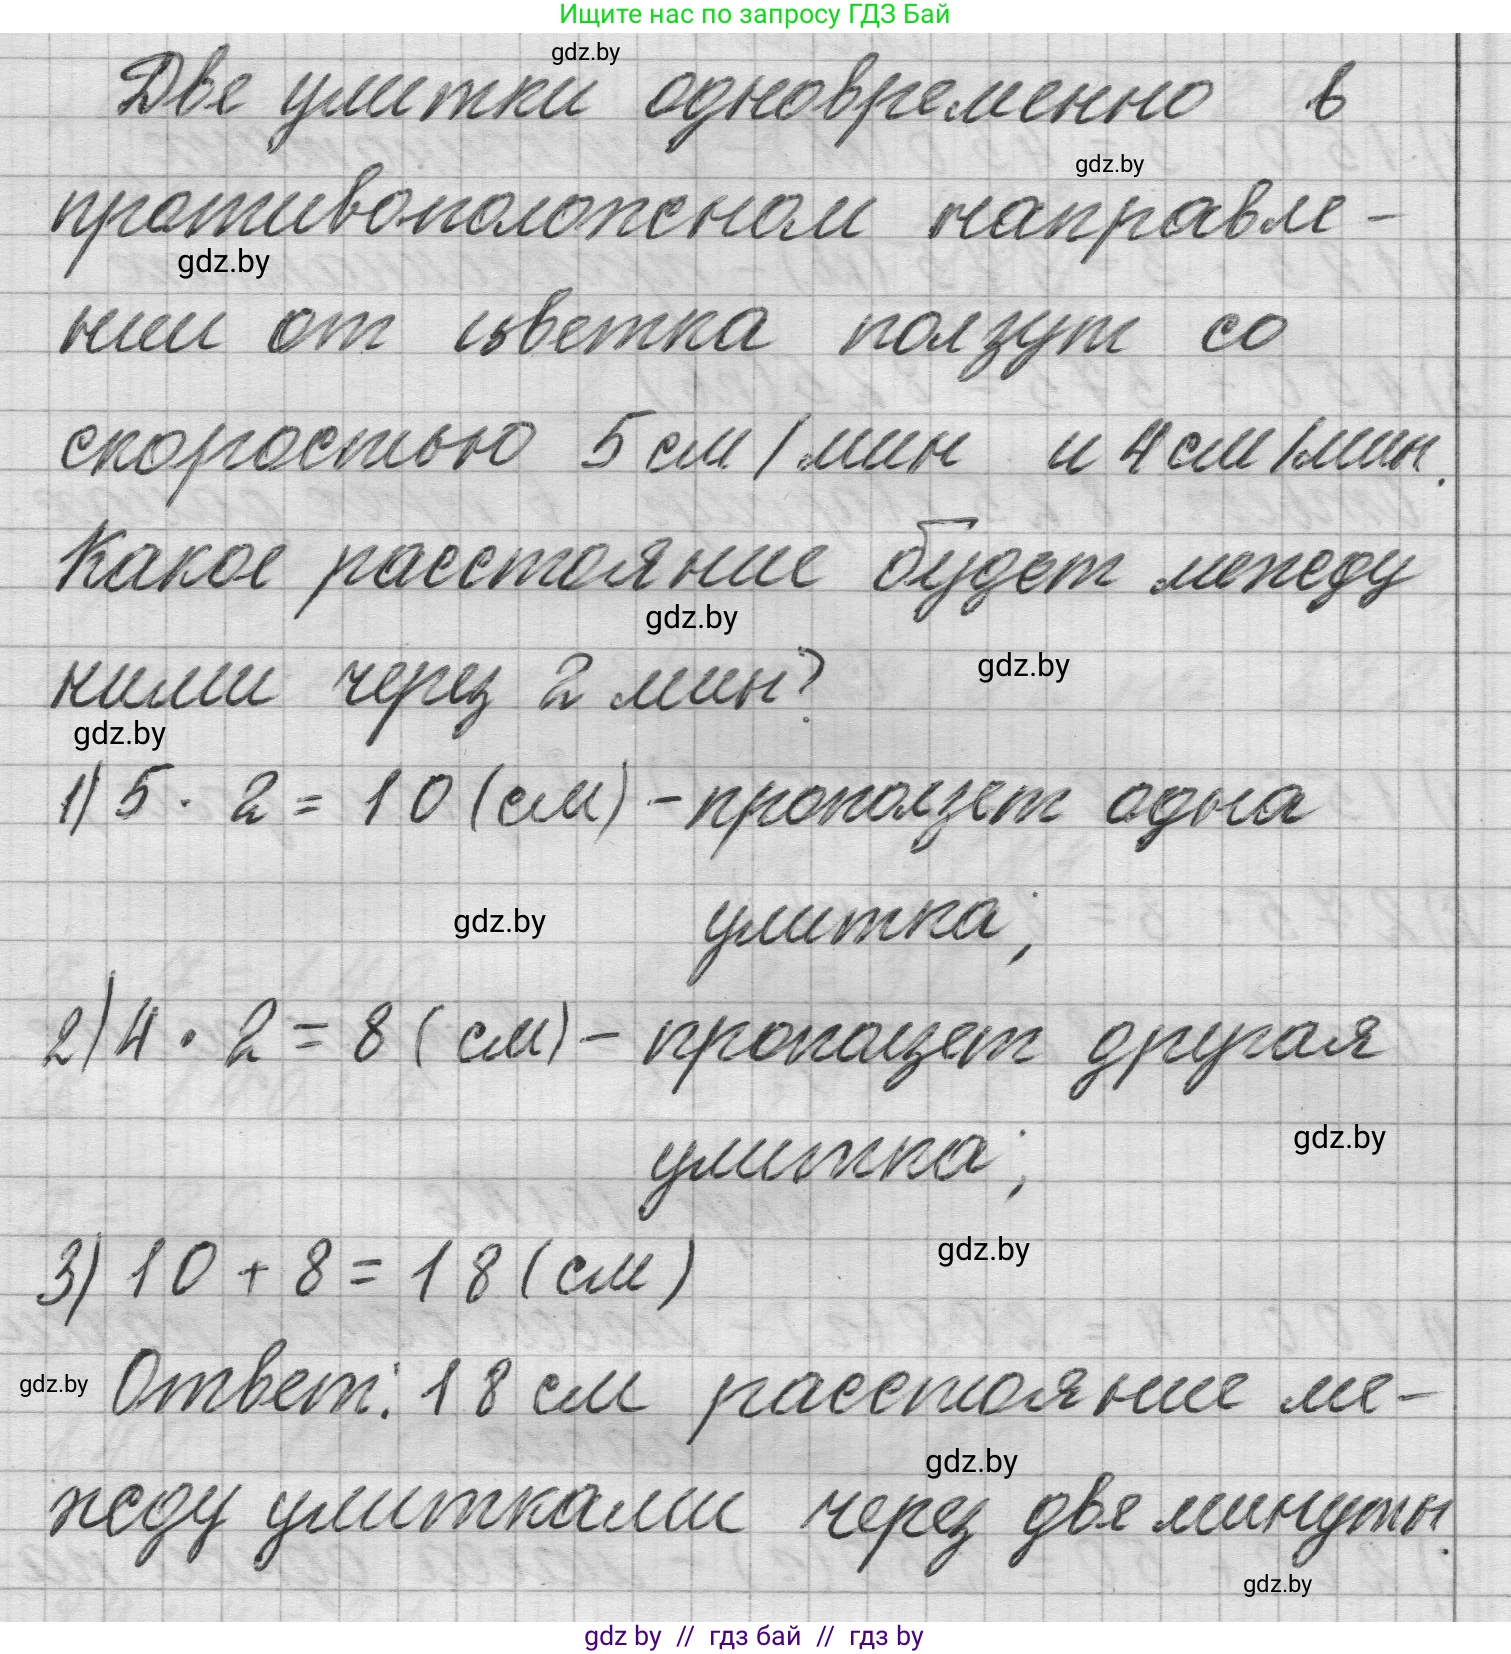 Ищите нас по запросу ГДЗ Бай
gdz.by
Две улитки одновременно в
gdz.by
противоположном направле-
gdz.by
нии от цветка ползут со
скоростью 5 см/мин и 4 см/мин.
Какое расстояние будет между
gdz.by
ними через 2 мин?
gdz.by
gdz.by
1) 5 · 2 = 10 (см) - проползет одна
gdz.by
улитка;
2) 4 · 2 = 8 (см) - проползет другая
gdz.by
улитка;
gdz.by
3) 10 + 8 = 18 (см)
gdz.by
Ответ: 18 см расстояние ме-
gdz.by
жду улитками через две минуты.
gdz.by
gdz by // гдз бай // гдз by